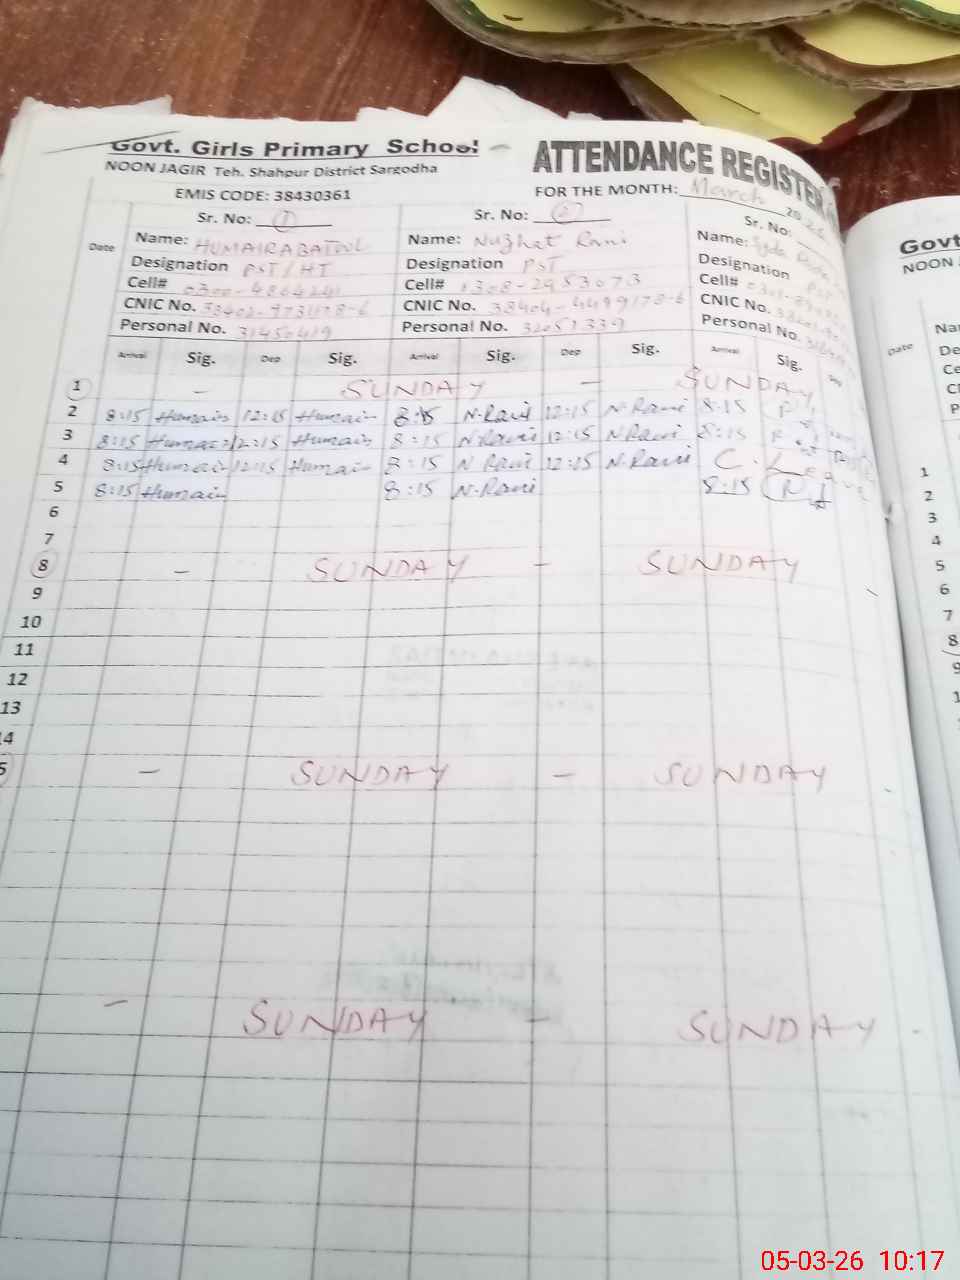 Govt. Girls Primary School
ATTENDANCE REGISTER
NOON JAGIR Teh. Shahpur District Sargodha
EMIS CODE: 38430361
FOR THE MONTH: March 20
Sr. No: 1 Sr. No: 2 Sr. No:
Date
Name: HUMAIRABATOOL Name: Nuzhat Rani Name:
Designation PST/HT Designation PST Designation
Cell# 0300-4864241 Cell# 0308-2953073 Cell#
CNIC No. CNIC No. CNIC No.
Personal No. 31450419 Personal No. 32051339 Personal No.
Arrival Sig. Dep Sig. Arrival Sig. Dep Sig. Arrival Sig. Dep
1 - SUNDAY - SUNDAY
2 8:15 Humair 12:15 Humair 8:15 N.Rani 12:15 N.Rani 8:15
3 8:15 Humair 12:15 Humair 8:15 N.Rani 12:15 N.Rani 8:15
4 8:15 Humair 12:15 Humair 8:15 N Rani 12:15 N.Rani C. Leave
5 8:15 Humair 8:15 N.Rani 8:15
6
7
8 - SUNDAY - SUNDAY
9
10
11
12
13
14
5 - SUNDAY - SUNDAY
- SUNDAY - SUNDAY
Govt
NOON
Date
Na
De
Ce
P
1
2
3
4
5
6
7
8
9
1
05-03-26 10:17